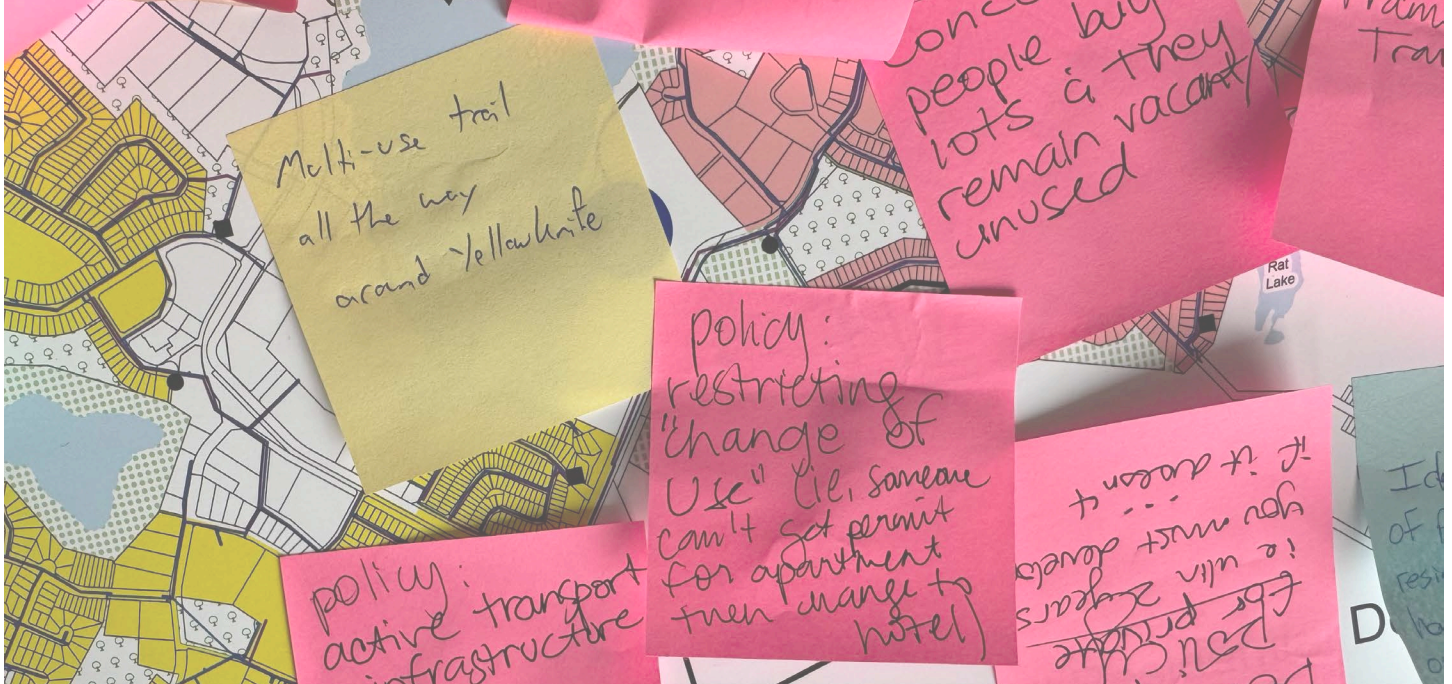 Multi-use trail
all the way
around Yellowknife
people buy
lots & they
remain vacant/
unused
Tram
Tra
Rat
Lake
policy:
restricting
"change of
Use" (i.e. someone
can't get permit
for apartment
then change to
hotel)
policy:
active transport
infrastructure
for private
i.e w/in 2 years
you must develo
if it doesn't
Id
of
resi
D